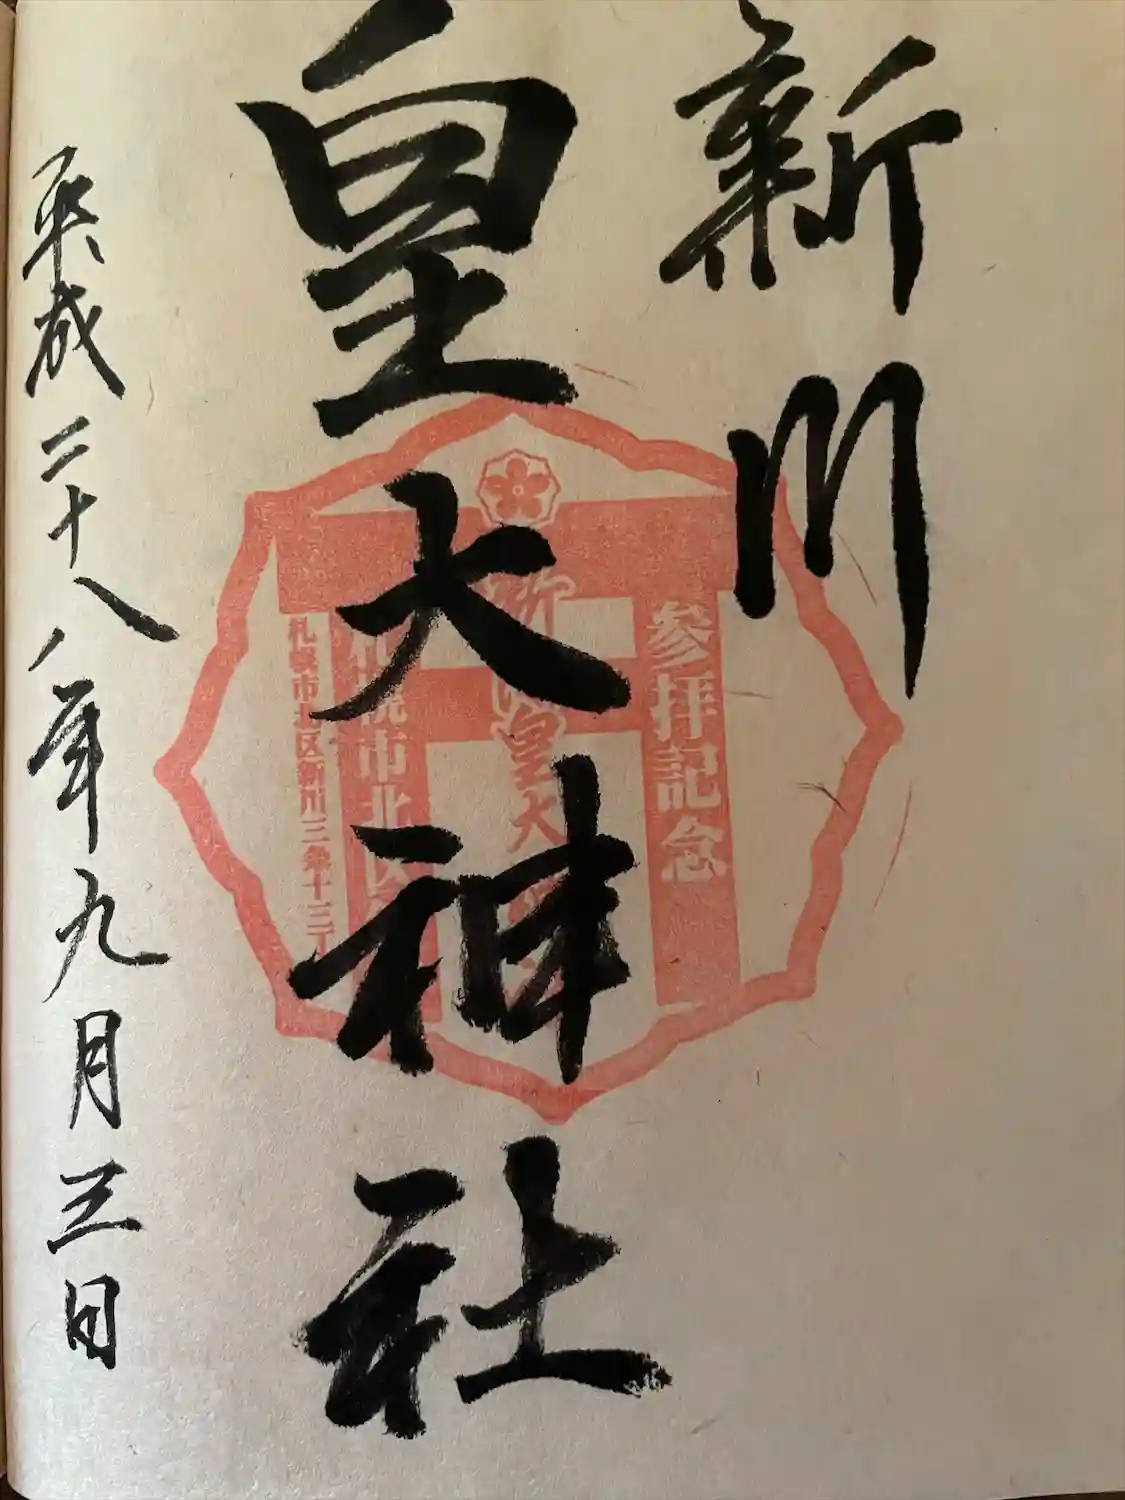 新川
皇大神社
平成二十八年九月三日
参拝記念
新川皇大
札幌市北区
札幌市北区新川三条十三丁